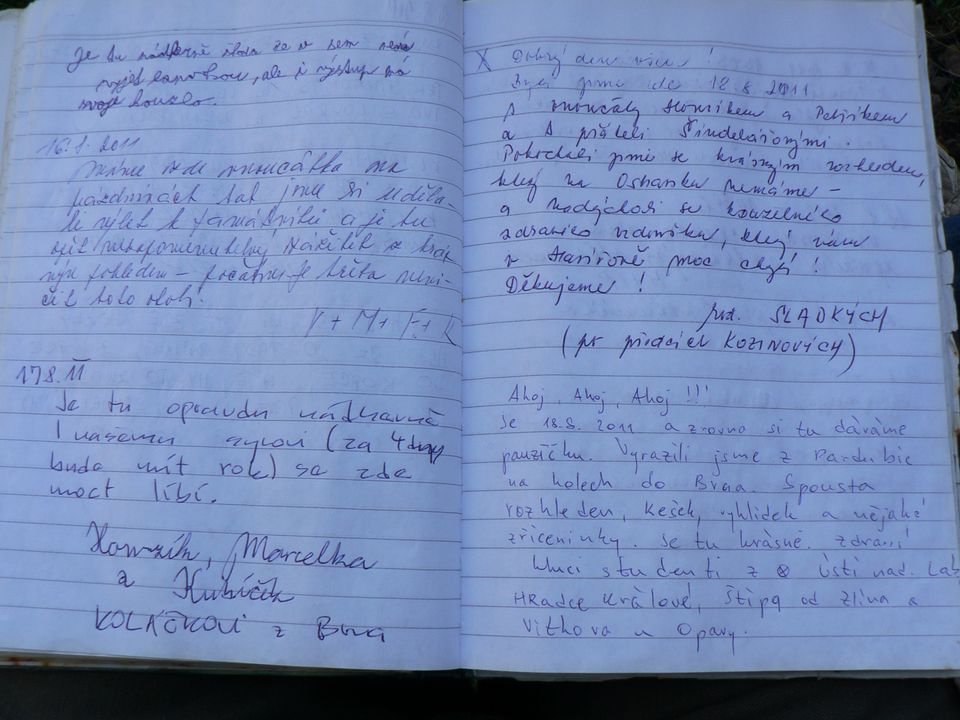 Je tu nádherně škoda že v sem není
vyjet lanovkou, ale i výstup má
svoje kouzlo.
16.8. 2011
Máme zde vnoučátka na
prázdninách tak jsme si uděla-
li výlet k památníku a je tu
opět nezapomenutelný zážitek s krás
ným pohledem -
čit toto okolí.
V + M + F + K
17.8. 11
Je tu opravdu nádherně
I našemu synovi (za 4 dny
bude mít rok) se zde
moct líbí.
Honzík, Marcelka
a Kubíčik
KOLÁČKOVI z Brna
X Dobrý den všem!
Byli jsme zde 18.8. 2011
s vnoučaty Honzíkem a Petříkem
a s přáteli Šindelářovými.
Pokochali jsme se krásným rozhledem,
který na Ostravsku nemáme -
a nadýchali se kouzelného
zdravého vzduchu, který nám
v Havířově moc chybí!
Děkujeme!
rod. SLADKÝCH
(po předcích KOZINOVÝCH)
Ahoj, Ahoj, Ahoj!!!
Je 18.8. 2011 a zrovna si tu dáváme
pauzičku. Vyrazili jsme z Pardubic
na kolech do Brna. Spousta
rozhleden, kešek, vyhlídek a nějaké
zříceninky. Je tu krásně. Zdraví
kluci studenti z Ústí nad. Lab
Hradce Králové, Štípa od Zlína a
Vítkova u Opavy.